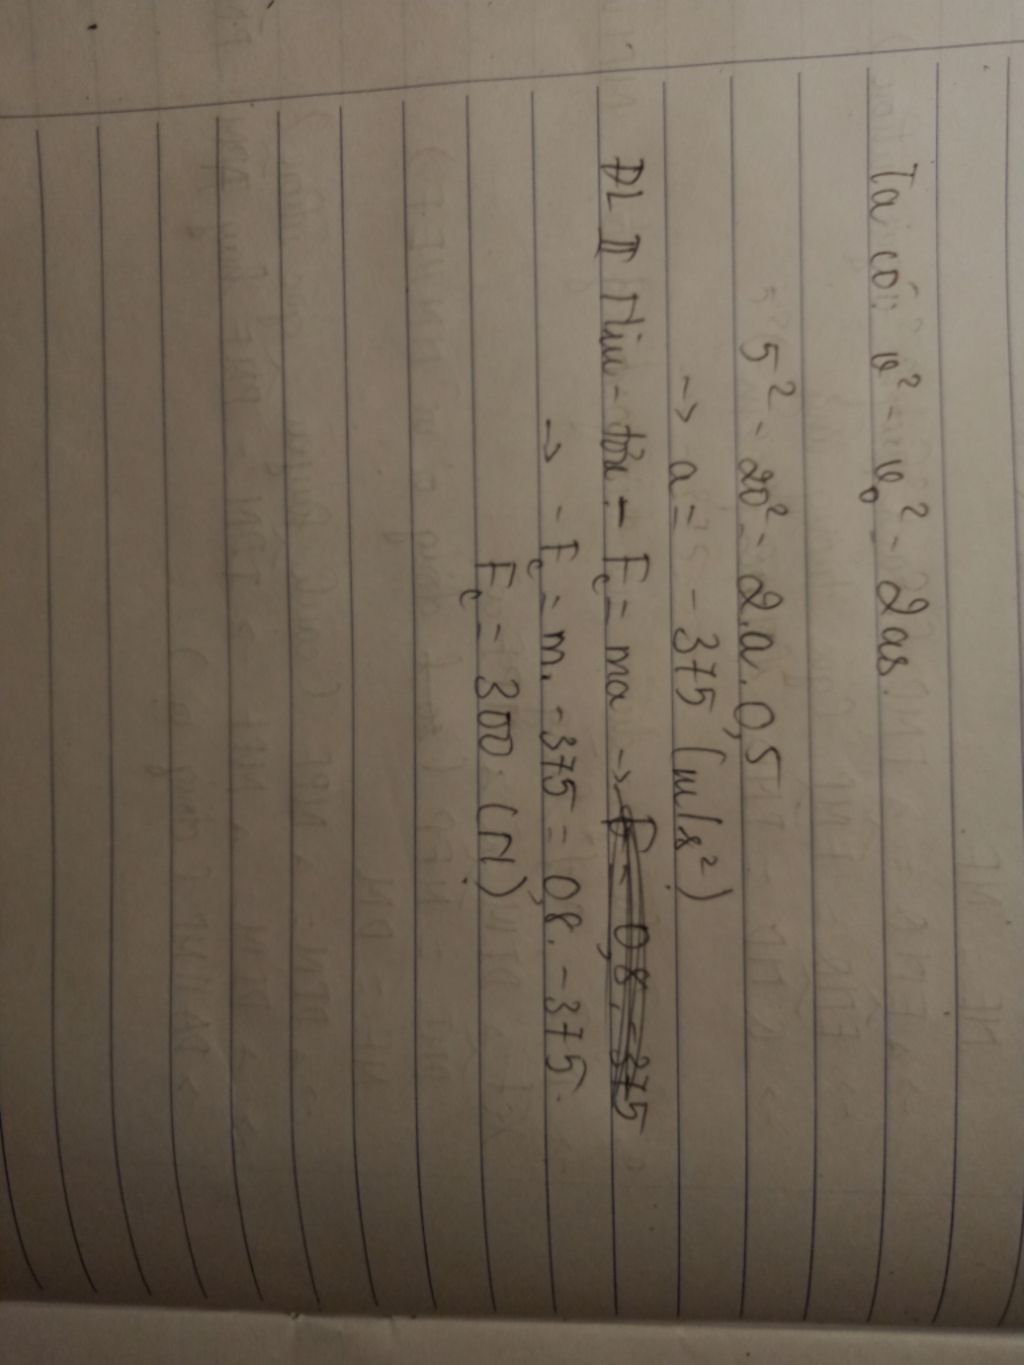 Ta có: v² - v₀² = 2as.
5² - 20² = 2.a.0,5
-> a = -375 (m/s²)
ĐL II Niu-tơn: - Fc = ma ->
-> - Fc = m. -375 = 0,8. -375.
Fc = 300. (N)